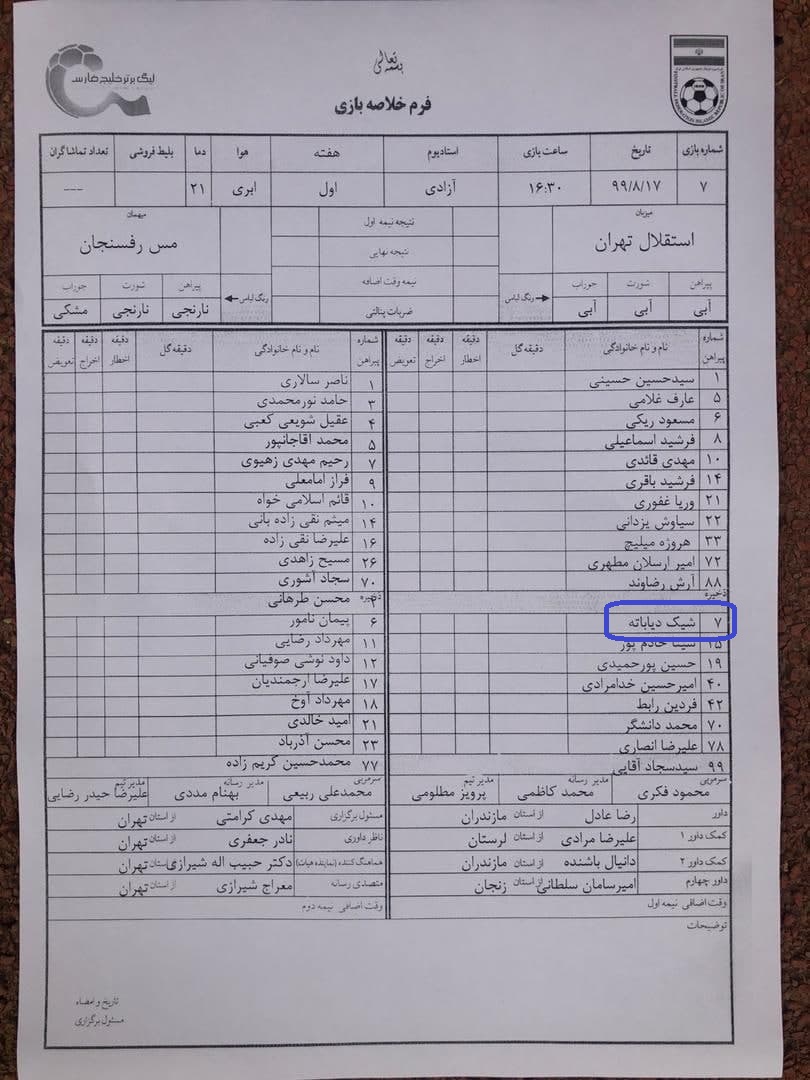 بسمه تعالی
لیگ برتر خلیج فارس
FOOTBALL FEDERATION ISLAMIC REPUBLIC OF IRAN
فرم خلاصه بازی
شماره بازی تاریخ ساعت بازی استادیوم هفته هوا دما بلیط فروشی تعداد تماشاگران
۷ ۹۹/۸/۱۷ ۱۶:۳۰ آزادی اول ابری ۲۱ ---
میزبان
استقلال تهران
نتیجه نیمه اول
نتیجه نهایی
نیمه وقت اضافه
ضربات پنالتی
میهمان
مس رفسنجان
پیراهن شورت جوراب رنگ لباس
آبی آبی آبی
رنگ لباس پیراهن شورت جوراب
نارنجی نارنجی مشکی
شماره پیراهن نام و نام خانوادگی دقیقه گل دقیقه اخطار دقیقه اخراج دقیقه تعویض
۱ سیدحسین حسینی
۵ عارف غلامی
۶ مسعود ریکی
۸ فرشید اسماعیلی
۱۰ مهدی قائدی
۱۴ فرشید باقری
۲۱ وریا غفوری
۲۲ سیاوش یزدانی
۳۳ هروژه میلیچ
۷۲ امیر ارسلان مطهری
۸۸ آرش رضاوند
ذخیره
۷ شیک دیاباته
۱۵ سینا خادم پور
۱۹ حسین پورحمیدی
۴۰ امیرحسین خدامرادی
۴۲ فردین رابط
۷۰ محمد دانشگر
۷۸ علیرضا انصاری
۹۹ سیدسجاد آقایی
شماره پیراهن نام و نام خانوادگی دقیقه گل دقیقه اخطار دقیقه اخراج دقیقه تعویض
۱ ناصر سالاری
۳ حامد نورمحمدی
۴ عقیل شویعی کعبی
۵ محمد آقاجانپور
۷ رحیم مهدی زهیوی
۹ فراز امامعلی
۱۰ قائم اسلامی خواه
۱۴ میثم نقی زاده بانی
۱۶ علیرضا نقی زاده
۲۶ مسیح زاهدی
۷۰ سجاد آشوری
ذخیره
۲ محسن طرهانی
۶ پیمان نامور
۱۱ مهرداد رضایی
۱۲ داود نوشی صوفیانی
۱۷ علیرضا ارجمندیان
۱۸ مهرداد آوخ
۲۱ امید خالدی
۲۳ محسن آذرباد
۷۷ محمدحسین کریم زاده
سرمربی محمود فکری مدیر رسانه محمد کاظمی مدیر تیم پرویز مظلومی
سرمربی محمدعلی ربیعی مدیر رسانه بهنام مددی مدیر تیم علیرضا حیدر رضایی
داور رضا عادل از استان مازندران
کمک داور ۱ علیرضا مرادی از استان لرستان
کمک داور ۲ دانیال باشنده از استان مازندران
داور چهارم امیرسامان سلطانی از استان زنجان
وقت اضافی نیمه اول
مسئول برگزاری مهدی کرامتی از استان تهران
ناظر داوری نادر جعفری از استان تهران
هماهنگ کننده (نماینده هیات) دکتر حبیب اله شیرازی از استان تهران
متصدی رسانه معراج شیرازی از استان تهران
وقت اضافی نیمه دوم
توضیحات
تاریخ و امضاء
مسئول برگزاری